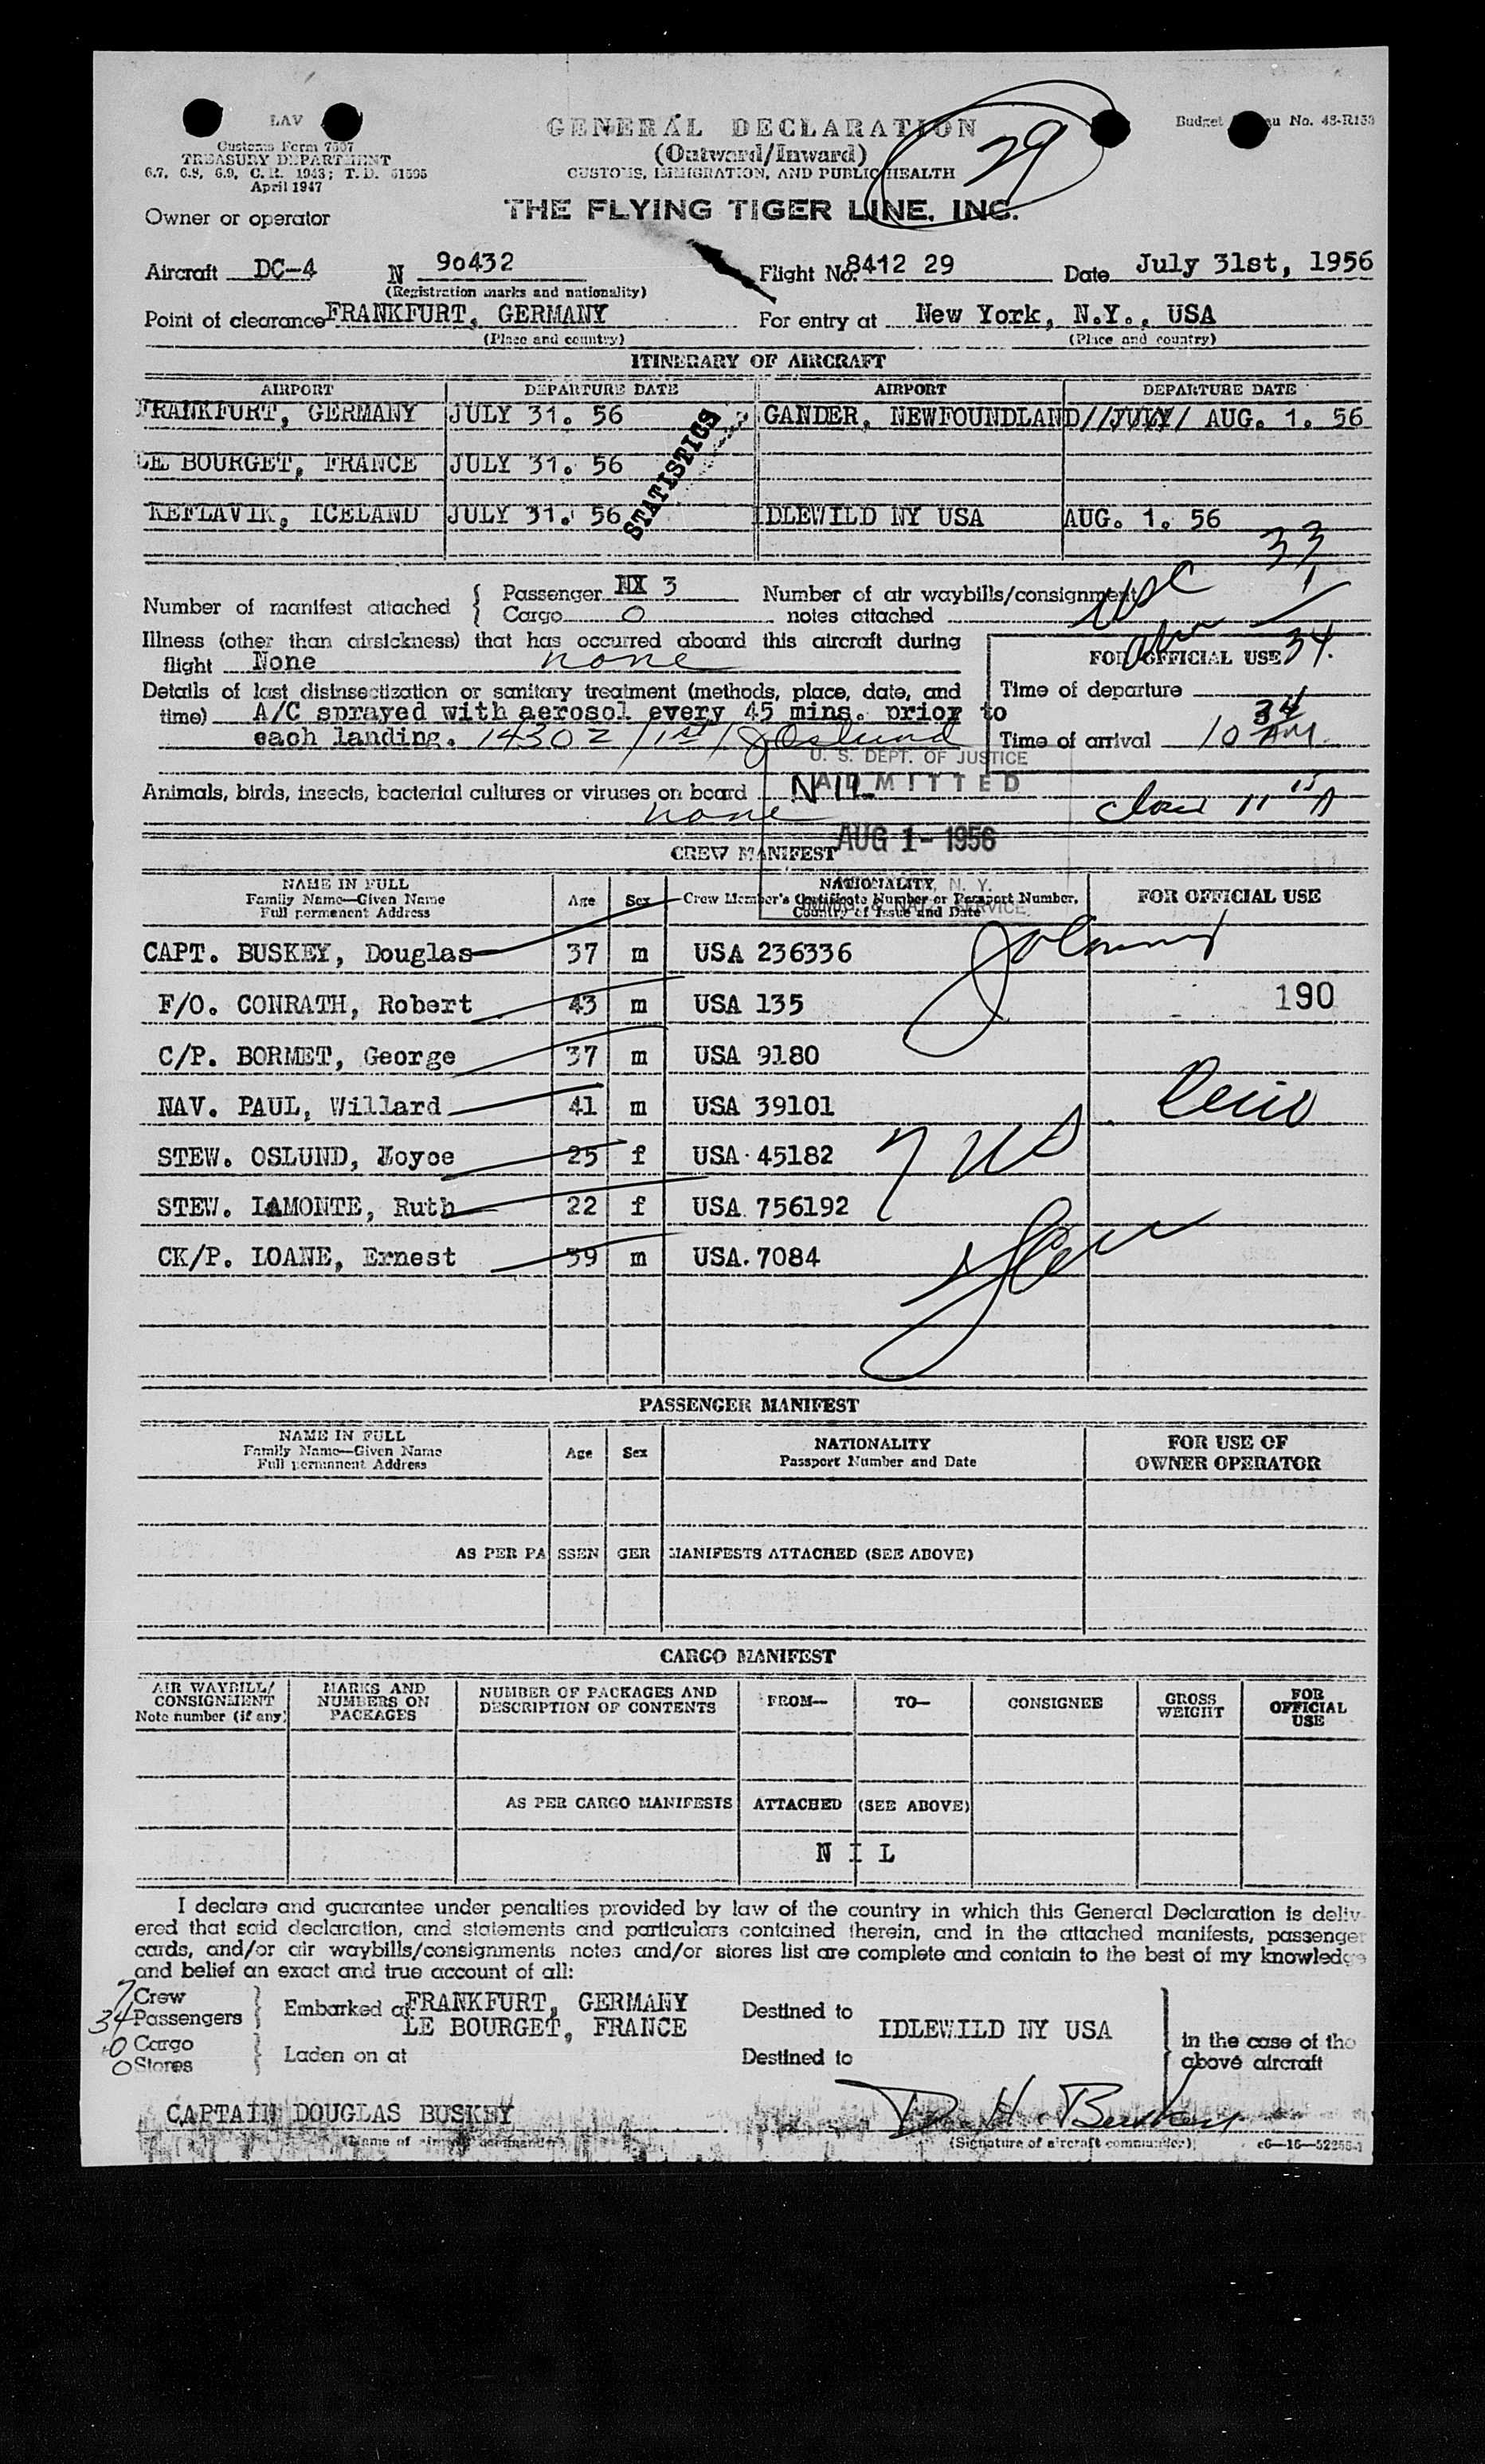 LAV
Customs Form 7507
TREASURY DEPARTMENT
6.7, 6.8, 6.9, C. R. 1943; T. D. 51595
April 1947
Budget Bureau No. 48-R153
GENERAL DECLARATION
(Outward/Inward)
CUSTOMS, IMMIGRATION, AND PUBLIC HEALTH
29
Owner or operator THE FLYING TIGER LINE, INC.
Aircraft DC-4 N 90432 Flight No. 8412 29 Date July 31st, 1956
(Registration marks and nationality)
Point of clearance FRANKFURT, GERMANY For entry at New York, N.Y., USA
(Place and country) (Place and country)
ITINERARY OF AIRCRAFT
AIRPORT DEPARTURE DATE AIRPORT DEPARTURE DATE
FRANKFURT, GERMANY JULY 31. 56 GANDER, NEWFOUNDLAND //JULY/ AUG. 1. 56
LE BOURGET, FRANCE JULY 31. 56
STATISTICS
KEFLAVIK, ICELAND JULY 31. 56 IDLEWILD NY USA AUG. 1. 56
33
USC 1
34.
Number of manifest attached { Passenger 3 Number of air waybills/consignment
Cargo 0 notes attached
Illness (other than airsickness) that has occurred aboard this aircraft during
flight None none
FOR OFFICIAL USE
Details of last disinsectization or sanitary treatment (methods, place, date, and
time) A/C sprayed with aerosol every 45 mins. prior to
each landing. 1430Z /1st/ J Oslund
Time of departure
34
Time of arrival 10 AM.
U. S. DEPT. OF JUSTICE
ADMITTED
Animals, birds, insects, bacterial cultures or viruses on board NIL
none
11 15 A
AUG 1 - 1956
CREW MANIFEST
NAME IN FULL
Family Name—Given Name
Full permanent Address
Age Sex
NATIONALITY
Crew Member's Certificate Number or Passport Number,
Country of Issue and Date
FOR OFFICIAL USE
N. Y.
IMMIG. & NAT. SERVICE
CAPT. BUSKEY, Douglas 37 m USA 236336
F/O. CONRATH, Robert 43 m USA 135 190
C/P. BORMET, George 37 m USA 9180
NAV. PAUL, Willard 41 m USA 39101
STEW. OSLUND, Joyce 25 f USA 45182 7 US
STEW. LAMONTE, Ruth 22 f USA 756192
CK/P. LOANE, Ernest 39 m USA. 7084
PASSENGER MANIFEST
NAME IN FULL
Family Name—Given Name
Full permanent Address
Age Sex
NATIONALITY
Passport Number and Date
FOR USE OF
OWNER OPERATOR
AS PER PASSENGER MANIFESTS ATTACHED (SEE ABOVE)
CARGO MANIFEST
AIR WAYBILL/
CONSIGNMENT
Note number (if any)
MARKS AND
NUMBERS ON
PACKAGES
NUMBER OF PACKAGES AND
DESCRIPTION OF CONTENTS
FROM— TO— CONSIGNEE
GROSS
WEIGHT
FOR
OFFICIAL
USE
AS PER CARGO MANIFESTS ATTACHED (SEE ABOVE)
N I L
I declare and guarantee under penalties provided by law of the country in which this General Declaration is deliv-
ered that said declaration, and statements and particulars contained therein, and in the attached manifests, passenger
cards, and/or air waybills/consignments notes and/or stores list are complete and contain to the best of my knowledge
and belief an exact and true account of all:
7 Crew
34 Passengers } Embarked at FRANKFURT, GERMANY Destined to
LE BOURGET, FRANCE IDLEWILD NY USA
0 Cargo
0 Stores } Laden on at Destined to
in the case of the
above aircraft
CAPTAIN DOUGLAS BUSKEY D. H. Buskey
(Name of aircraft commander) (Signature of aircraft commander) c6—16—52255-1